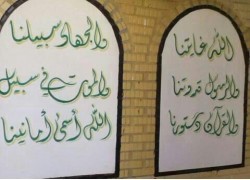 الله غايتنا
والرسول قدوتنا
والقرآن دستورنا
والجهاد سبيلنا
والموت في سبيل
الله أسمى أمانينا